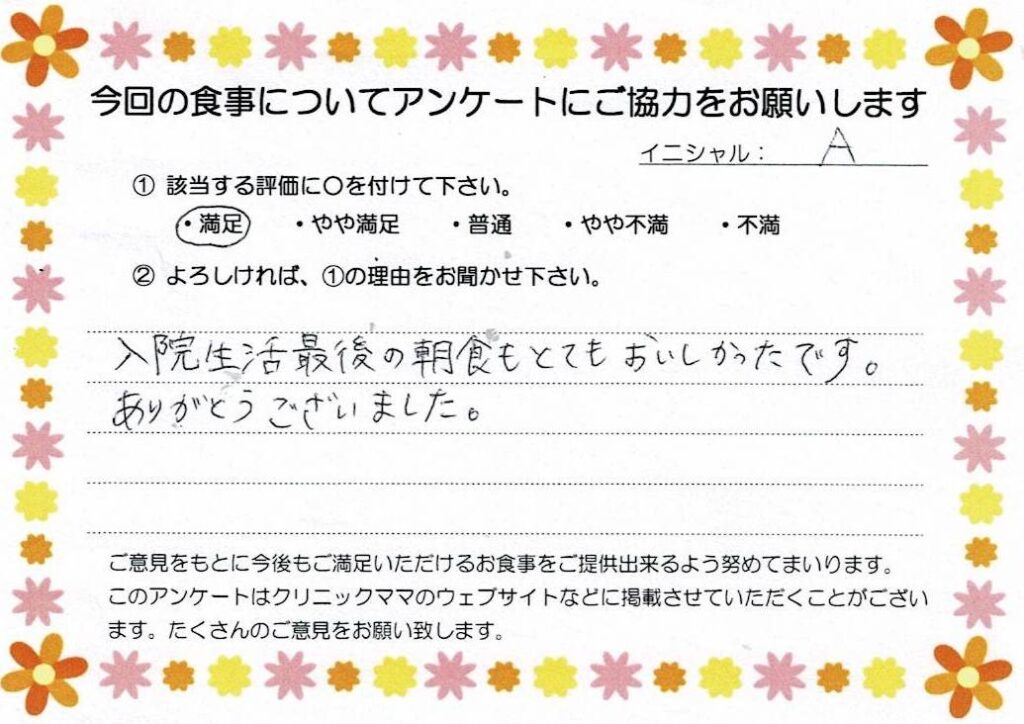 今回の食事についてアンケートにご協力をお願いします
イニシャル： A
① 該当する評価に〇を付けて下さい。
・満足 ・やや満足 ・普通 ・やや不満 ・不満
② よろしければ、①の理由をお聞かせ下さい。
入院生活最後の朝食もとてもおいしかったです。
ありがとうございました。
ご意見をもとに今後もご満足いただけるお食事をご提供出来るよう努めてまいります。
このアンケートはクリニックママのウェブサイトなどに掲載させていただくことがござい
ます。たくさんのご意見をお願い致します。